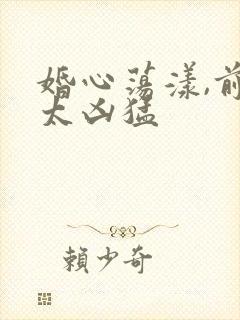 婚心荡漾,前
太凶猛
賴少奇